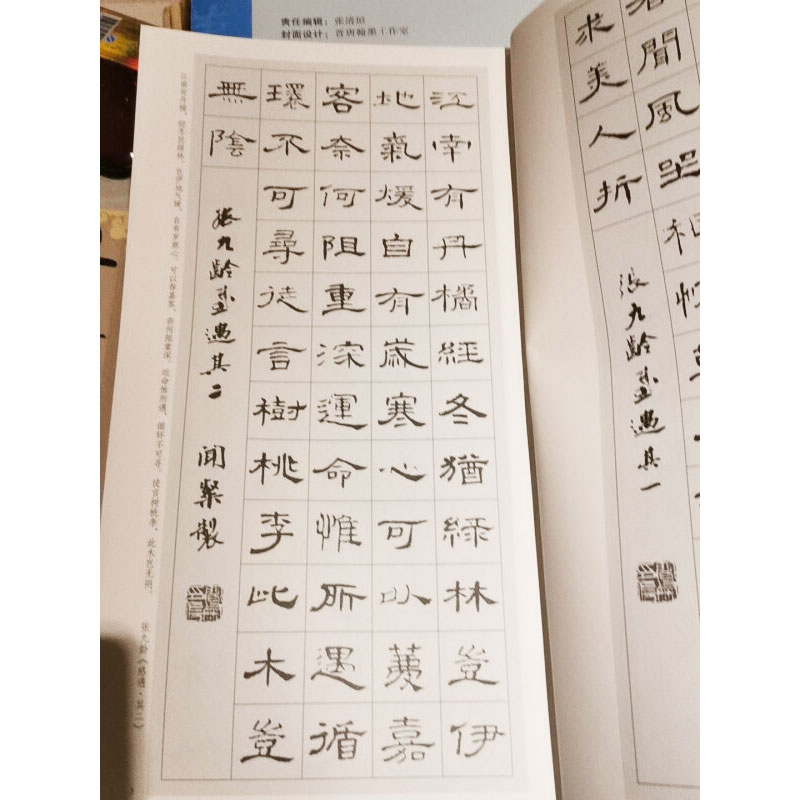 责任编辑：
封面设计：晋唐翰墨工作室
聞風坐相悅草
求美人折
張九齡感遇其一
江南有丹橘經冬猶綠林豈伊
地氣煖自有歲寒心可以薦嘉
客奈何阻重深運命惟所遇循
環不可尋徒言樹桃李此木豈
無陰
張九齡感遇其二 聞製
江南有丹橘，经冬犹绿林。岂伊地气暖，自有岁寒心。可以荐嘉客，奈何阻重深。运命惟所遇，循环不可寻。徒言树桃李，此木岂无阴。 张九龄《感遇·其二》